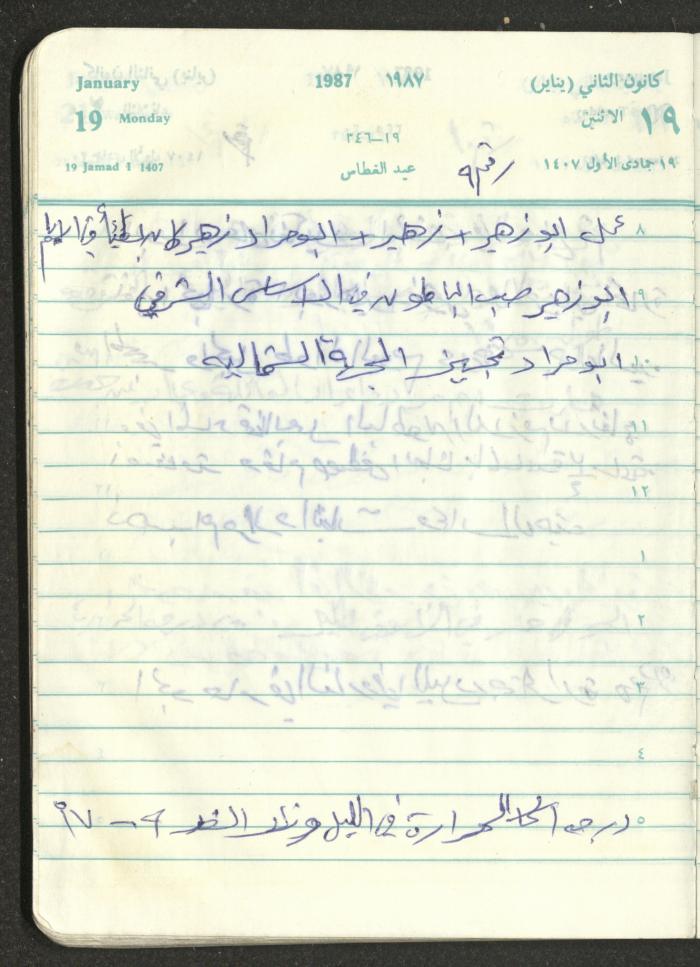 January 1987 ١٩٨٧ كانون الثاني (يناير)
19 Monday الاثنين ١٩
١٩-٣٤٦
19 Jamad I 1407 عيد الغطاس ١٩ جمادى الأول ١٤٠٧
رقم ٩
٨ عمل ابو زهير + زهير + ابو مراد زهير كان
٩ ابو زهير صب الباطون في الاساس الشرقي
١٠ ابو مراد تجهيز الجهة الشماليه
١١
١٢
١
٢
٣
٤
٥ درجة الحرارة في الليل ونهار الغد ٤ - ٧